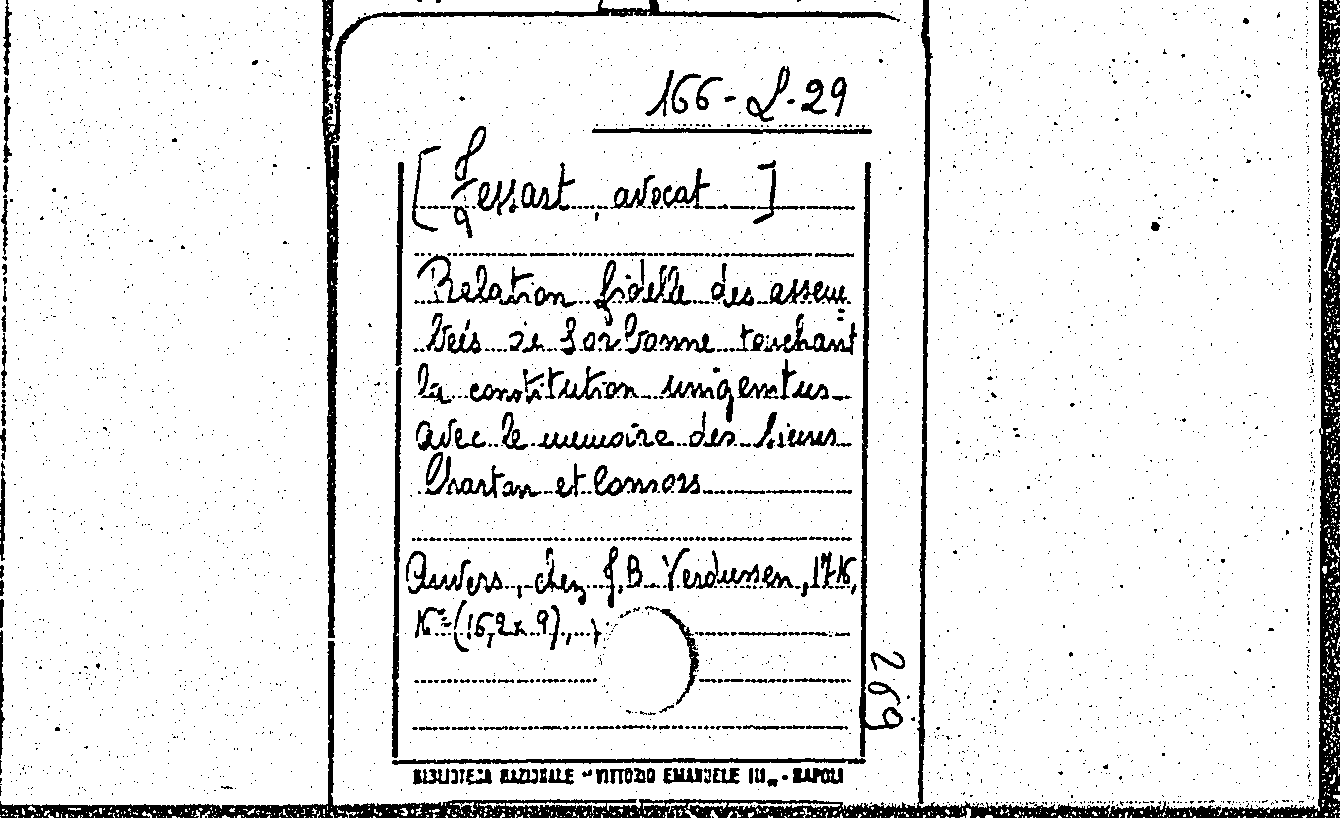 166-L-29
[Fessart, avocat]
Relation fidelle des assem=
blées de Sorbonne touchant
la constitution unigenitus
avec le memoire des sieurs
Charton et Consors
Anvers, chez J.B. Verdussen, 1716,
16°=(16,2x9),
269
BIBLIOTECA NAZIONALE "VITTORIO EMANUELE III" - NAPOLI